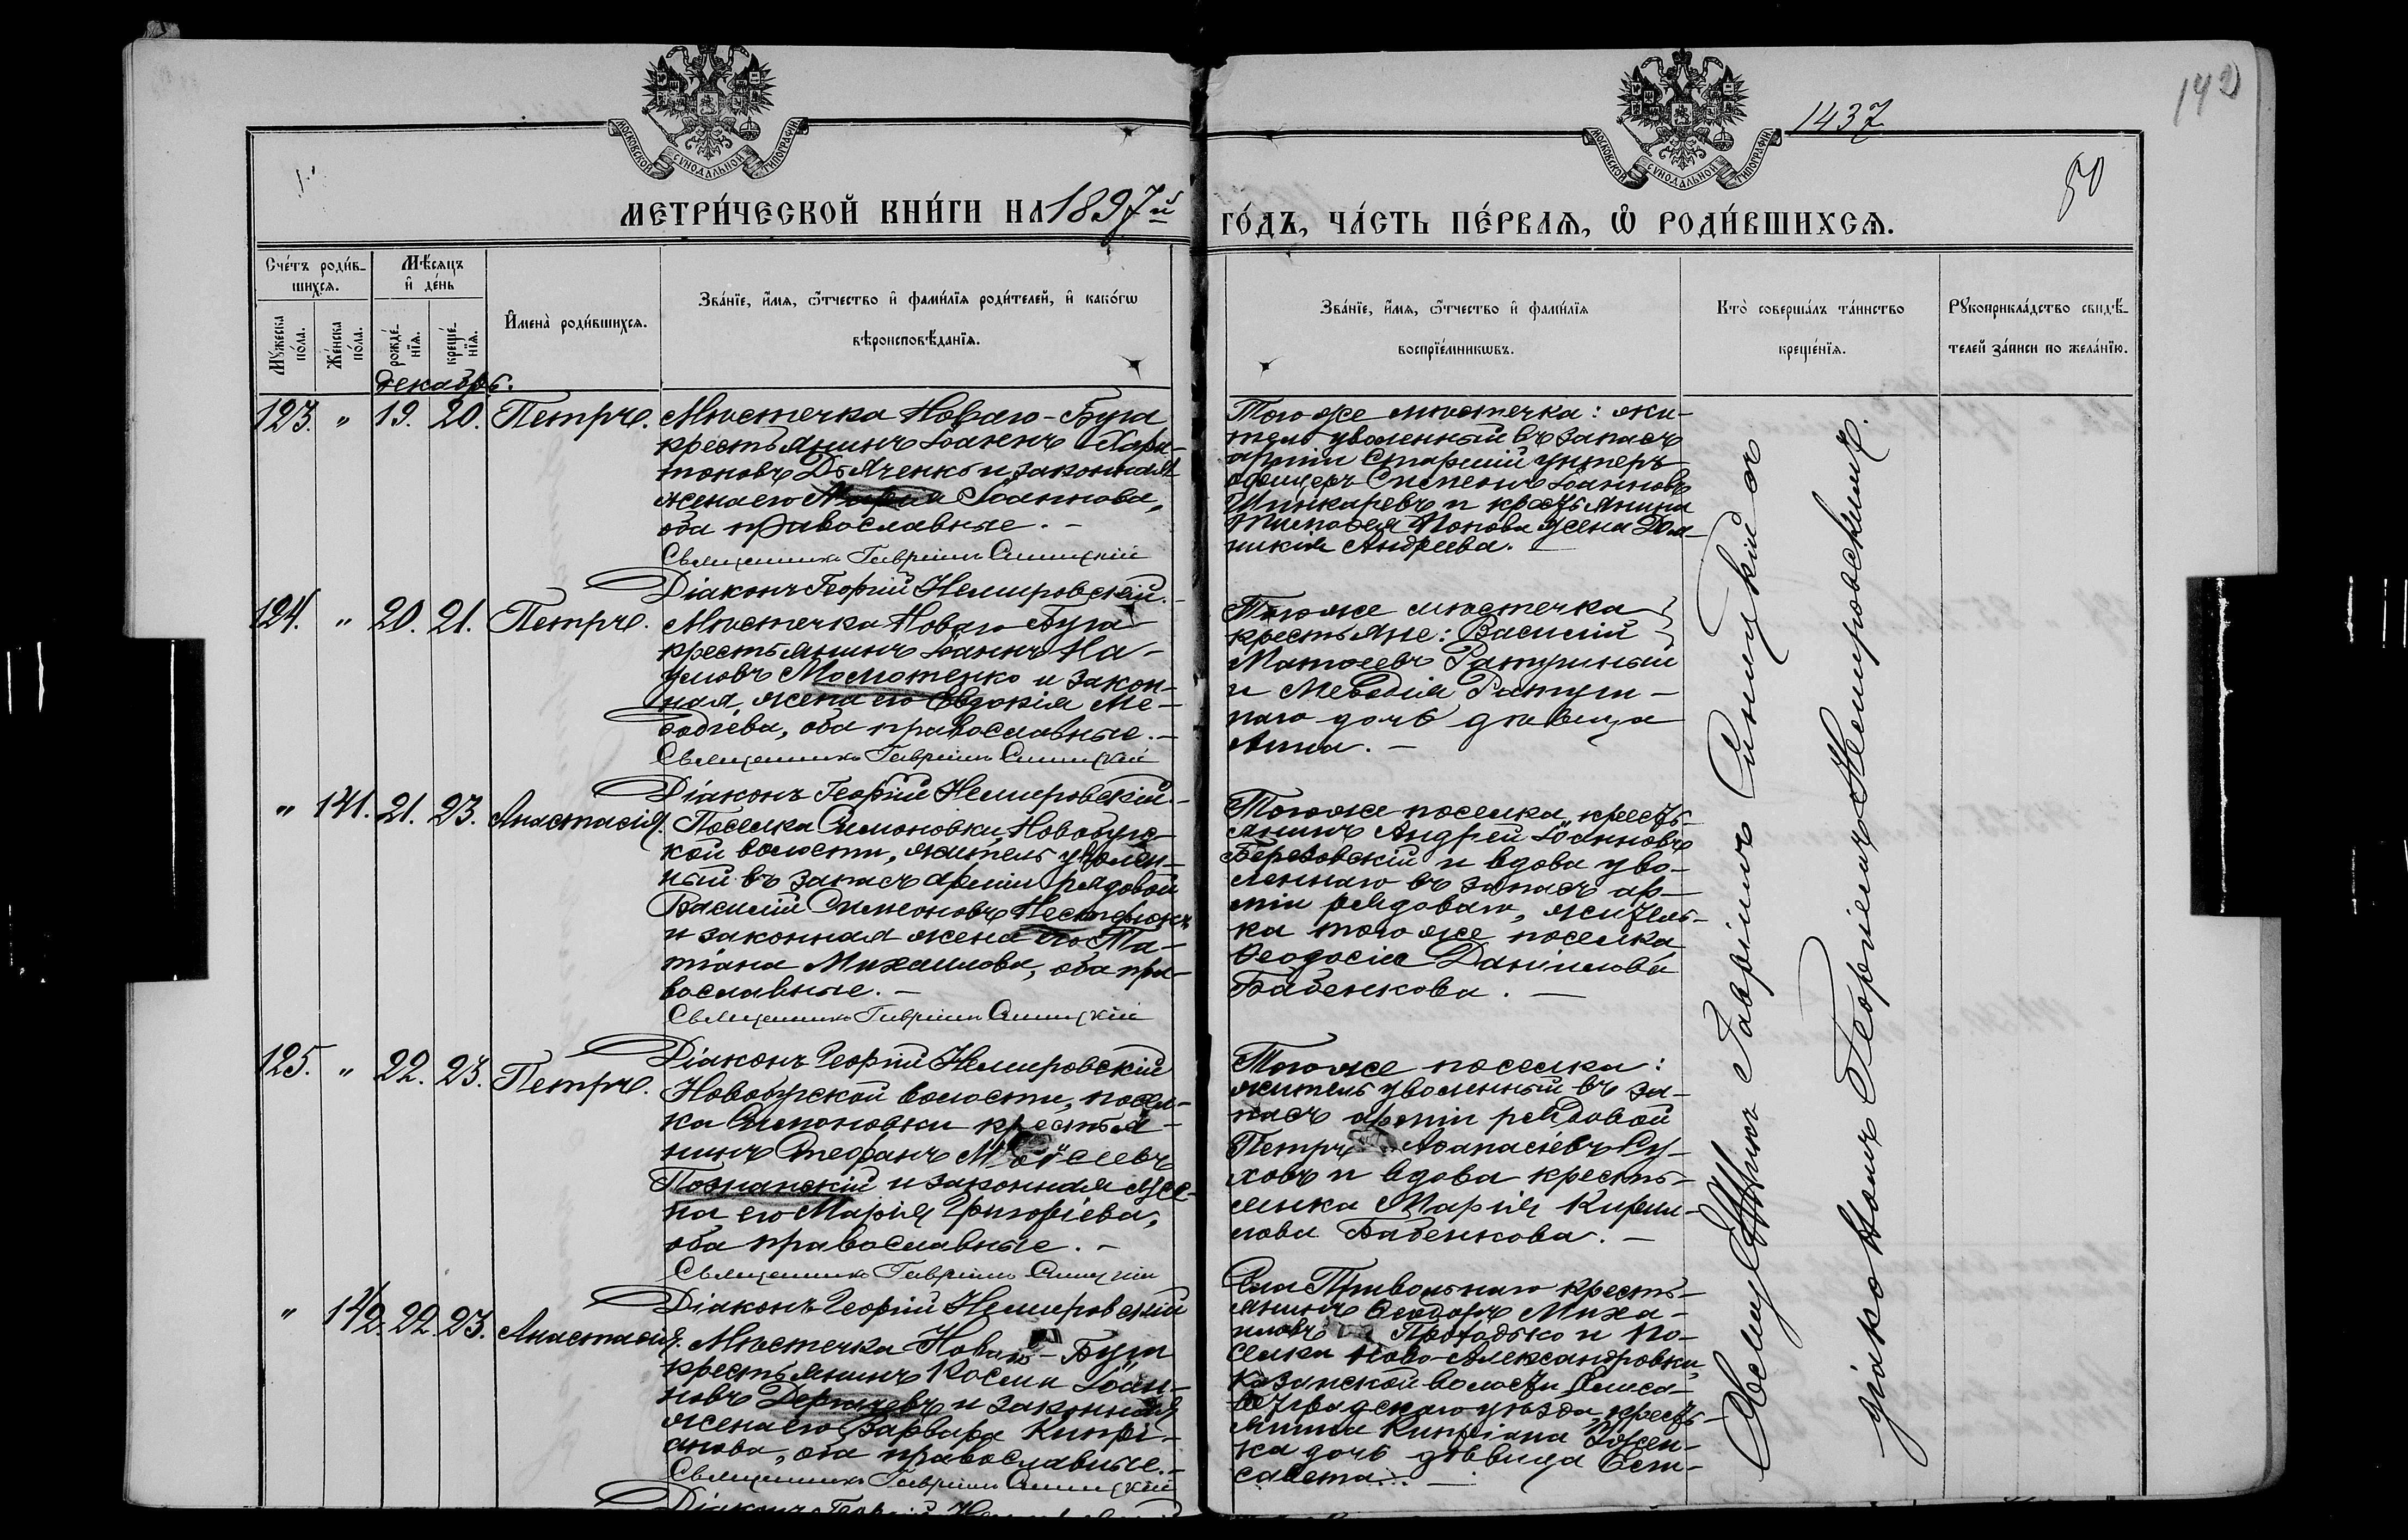 142
1437
50
МОСКОВСКОЙ СѴНОДАЛЬНОЙ ТИПОГРАФІИ
МОСКОВСКОЙ СѴНОДАЛЬНОЙ ТИПОГРАФІИ
МЕТРИ́ЧЕСКОЙ КНИ́ГИ НА 1897й ГО́ДЪ, ЧА́СТЬ ПЕ́РВАѦ, Ѽ РОДИ́ВШИХСѦ.
Сче́тъ роди́в-
шихсѧ.
Мꙋ́жеска по́ла.
Же́нска по́ла.
Мѣ́сѧцъ
и҆ де́нь
рожде́-нїѧ.
креще́-нїѧ.
И҆мена̀ роди́вшихсѧ.
Зва́нїе, и҆́мѧ, ѻ҆́тчество и҆ фами́лїѧ роди́телей, и҆ како́гѡ
вѣроисповѣ́данїѧ.
Зва́нїе, и҆́мѧ, ѻ҆́тчество и҆ фами́лїѧ
воспрїе́мникѡвъ.
Кто̀ соверша́лъ та́инство
креще́нїѧ.
Рꙋкоприкла́дство свидѣ́-
телей за́писи по жела́нїю.
декабрь.
123. " 19. 20. Петръ.
Мѣстечка Новаго-Буга
крестьянинъ Іоаннъ Хари-
тоновъ Дьяченко и законная
жена его Марія Іоаннова,
оба православные. -
Священникъ Гавріилъ Синицкій
Діаконъ Георгій Немировскій.
Того же мѣстечка: жи-
тель уволенный въ запасъ
арміи Старшій унтеръ-
офицеръ Сименъ Іоанновъ
Шинкаревъ и крестьянина
Тимофея Попова жена Дом-
никія Андреева.
124. " 20. 21. Петръ.
Мѣстечка Новаго Буга
крестьянинъ Іоаннъ На-
умовъ Молотенко и закон-
ная жена его Евдокія Ме-
ѳодіева, оба православные. -
Священникъ Гавріилъ Синицкій
Діаконъ Георгій Немировскій.
Того же мѣстечка
крестьяне: Василій
Матѳеевъ Ратушный
и Меѳодія Ратуш-
наго дочь дѣвица
Анна. -
" 141. 21. 23. Анастасія.
Поселка Симоновки, Новобуж-
кой волости, житель уволен-
ный въ запасъ арміи рядовой
Василій Симеоновъ
и законная жена его Та-
тіана Михаилова, оба пра-
вославные. -
Священникъ Гавріилъ Синицкій
Діаконъ Георгій Немировскій
Того же поселка, кресть-
янинъ Андрей Іоанновъ
Березовскій и вдова уво-
леннаго въ запасъ ар-
міи рядоваго, житель-
ка того же поселка
Ѳеодосія Даніилова
Бабенкова. -
125. " 22. 23. Петръ.
Новобугской волости, посел-
ка Симоновки крестья-
нинъ Стефанъ Моѵсеевъ
Познанскій и законная же-
на его Марія Григоріева,
оба православные. -
Священникъ Гавріилъ Синицкій
Діаконъ Георгій Немировскій
Того же поселка:
житель уволенный въ за-
пасъ арміи рядовой
Петръ Аѳанасіевъ Су-
ховъ и вдова кресть-
янка Марія Кирил-
лова Бабенкова. -
" 142. 22. 23. Анастасія.
Мѣстечка Новаго-Буга
крестьянинъ Косма Іоан-
новъ Дергачевъ и законная
жена его Варвара Кипрі-
анова, оба православные. -
Священникъ Гавріилъ Синицкій
Діаконъ Георгій
Села Привольнаго кресть-
янинъ Ѳеодоръ Миха-
иловъ и по-
селка Ново-Александровки,
Казанской волости Елиса-
ветградскаго уѣзда, кресть-
янина Кипріана
ка дочь дѣвица Ели-
савета. -
Священникъ Гавріилъ Синицкій съ
діакономъ Георгіемъ Немировскимъ.